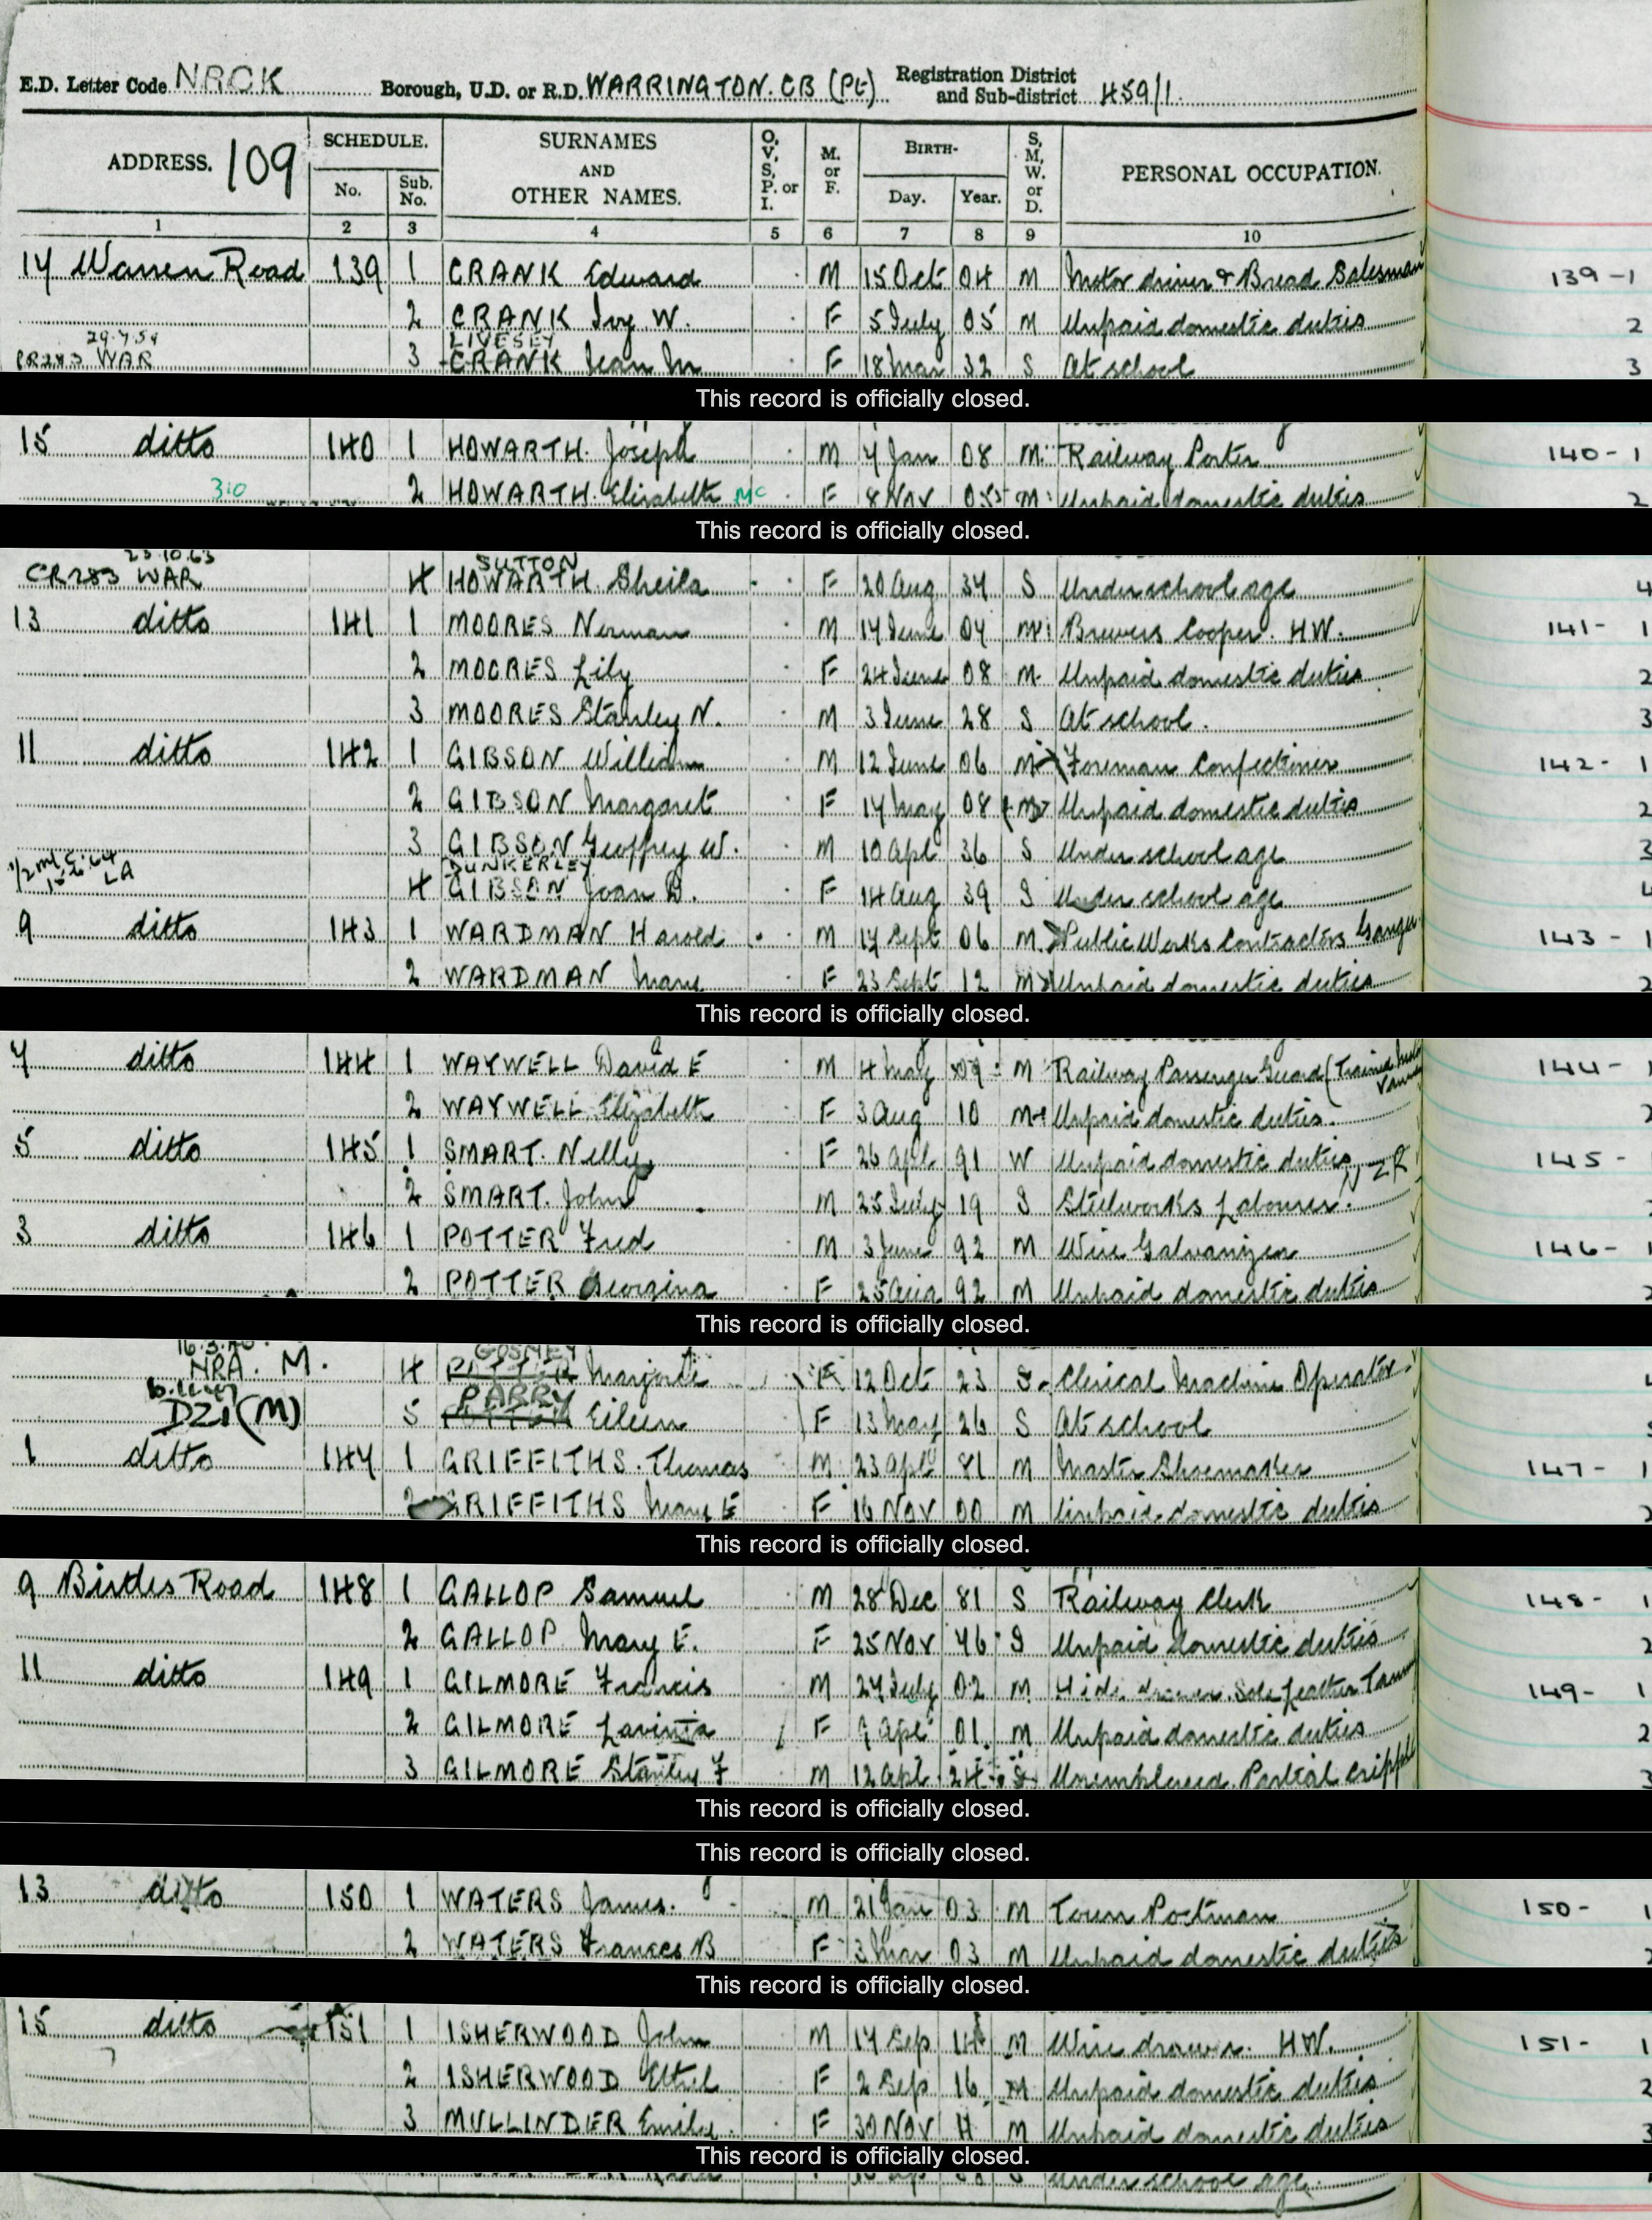 E.D. Letter Code NRCK Borough, U.D. or R.D. WARRINGTON. CB (Pt) Registration District and Sub-district 459/1.
ADDRESS. 109 SCHEDULE. No. Sub. No. SURNAMES AND OTHER NAMES. O, V, S, P. or I. M. or F. BIRTH- Day. Year. S, M, W. or D. PERSONAL OCCUPATION.
1 2 3 4 5 6 7 8 9 10
17 Warren Road 139 1 CRANK Edward M 15 Oct 04 M Motor driver & Bread Salesman 139-1
2 CRANK Ivy W. F 5 July 05 M Unpaid domestic duties 2
29.7.54 LIVESEY
CR283 WAR 3 CRANK Jean M F 18 Mar 32 S At school 3
This record is officially closed.
15 ditto 140 1 HOWARTH. Joseph M 7 Jan 08 M Railway Porter 140-1
310 2 HOWARTH. Elizabeth Mc F 8 Nov 05 M Unpaid domestic duties 2
This record is officially closed.
23.10.63 SUTTON
CR283 WAR 4 HOWARTH. Sheila F 20 Aug 34 S Under school age 4
13 ditto 141 1 MOORES Norman M 17 June 07 M Brewers Cooper. H.W. 141-1
2 MOORES Lily F 24 June 08 M Unpaid domestic duties 2
3 MOORES Stanley N. M 3 June 28 S At school. 3
11 ditto 142 1 GIBSON William M 12 June 06 M Foreman Confectioner 142-1
2 GIBSON Margaret F 17 May 08 M Unpaid domestic duties 2
3 GIBSON Geoffrey W. M 10 Apl 36 S Under school age 3
DUNKERLEY
LA 4 GIBSON Joan D. F 14 Aug 39 S Under school age 4
9 ditto 143 1 WARDMAN Harold M 17 Sept 06 M Public Works Contractors Ganger 143-1
2 WARDMAN Mary F 23 Sept 12 M Unpaid domestic duties 2
This record is officially closed.
7 ditto 144 1 WAYWELL David E M 4 May 09 M Railway Passenger Guard (Trained 144-1
2 WAYWELL Elizabeth F 3 Aug 10 M Unpaid domestic duties. 2
5 ditto 145 1 SMART. Nelly F 26 Apl 91 W Unpaid domestic duties 145-
2 SMART. John M 25 July 19 S Steelworks Labourer.
3 ditto 146 1 POTTER Fred M 3 June 92 M Wire Galvanizer 146-1
2 POTTER Georgina F 25 Aug 92 M Unpaid domestic duties 2
This record is officially closed.
GOSNEY
NRA. M. 4 POTTER Marjorie F 12 Oct 23 S Clerical Machine Operator
PARRY
DZ1 (M) 5 POTTER Eileen F 13 May 26 S At school
1 ditto 147 1 GRIFFITHS. Thomas M 23 Apl 81 M Master Shoemaker 147-1
2 GRIFFITHS Mary E F 16 Nov 00 M Unpaid domestic duties 2
This record is officially closed.
9 Birtles Road 148 1 GALLOP Samuel M 28 Dec 81 S Railway Clerk 148-1
2 GALLOP Mary E. F 25 Nov 76 S Unpaid domestic duties 2
11 ditto 149 1 GILMORE Francis M 27 July 02 M Hide Sole Leather Tan 149-1
2 GILMORE Lavinia F 9 Apl 01 M Unpaid domestic duties 2
3 GILMORE Stanley F M 12 Apl 24 S Unemployed. Partial Cripple 3
This record is officially closed.
This record is officially closed.
13 ditto 150 1 WATERS James. M 21 Jan 03 M Town Postman 150-1
2 WATERS Frances B F 3 Mar 03 M Unpaid domestic duties 2
This record is officially closed.
15 ditto 151 1 ISHERWOOD John M 17 Sep 14 M Wire drawer. H.W. 151-1
2 ISHERWOOD Ethel F 2 Sep 16 M Unpaid domestic duties 2
3 MULLINDER Emily F 30 Nov 11 M Unpaid domestic duties 3
This record is officially closed.
under school age.